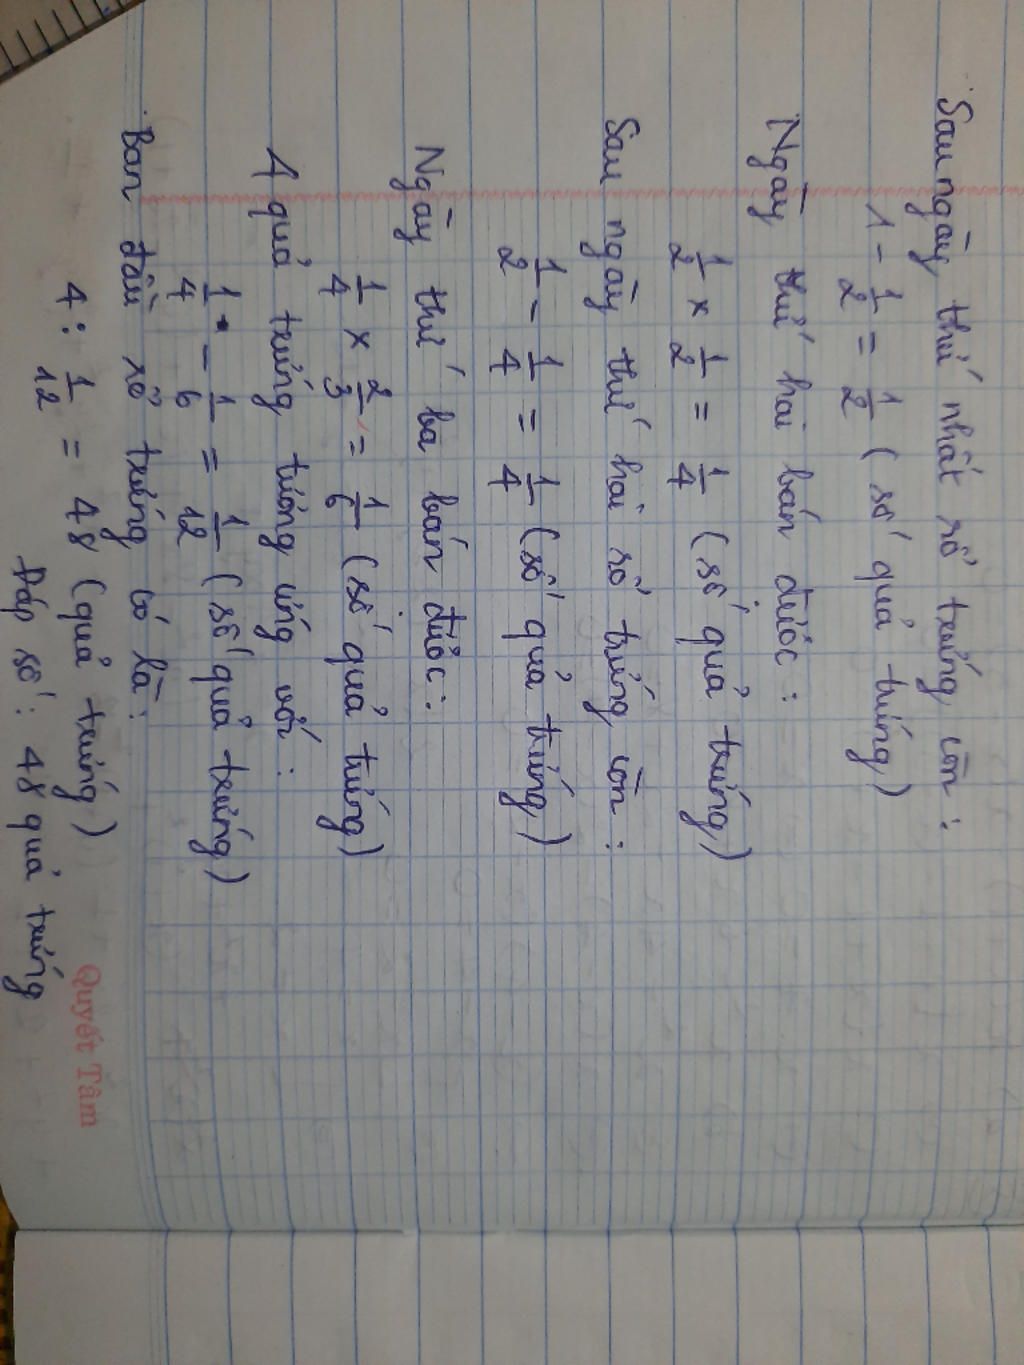 Sau ngày thứ nhất số trứng còn :
1 - 1/2 = 1/2 ( số quả trứng )
Ngày thứ hai bán được :
1/2 × 1/2 = 1/4 ( số quả trứng )
Sau ngày thứ hai số trứng còn :
1/2 - 1/4 = 1/4 ( số quả trứng )
Ngày thứ ba bán được :
1/4 × 2/3 = 1/6 ( số quả trứng )
4 quả trứng tương ứng với :
1/4 - 1/6 = 1/12 ( số quả trứng )
Ban đầu số trứng có là :
4 : 1/12 = 48 ( quả trứng )
Đáp số : 48 quả trứng
Quyết Tâm